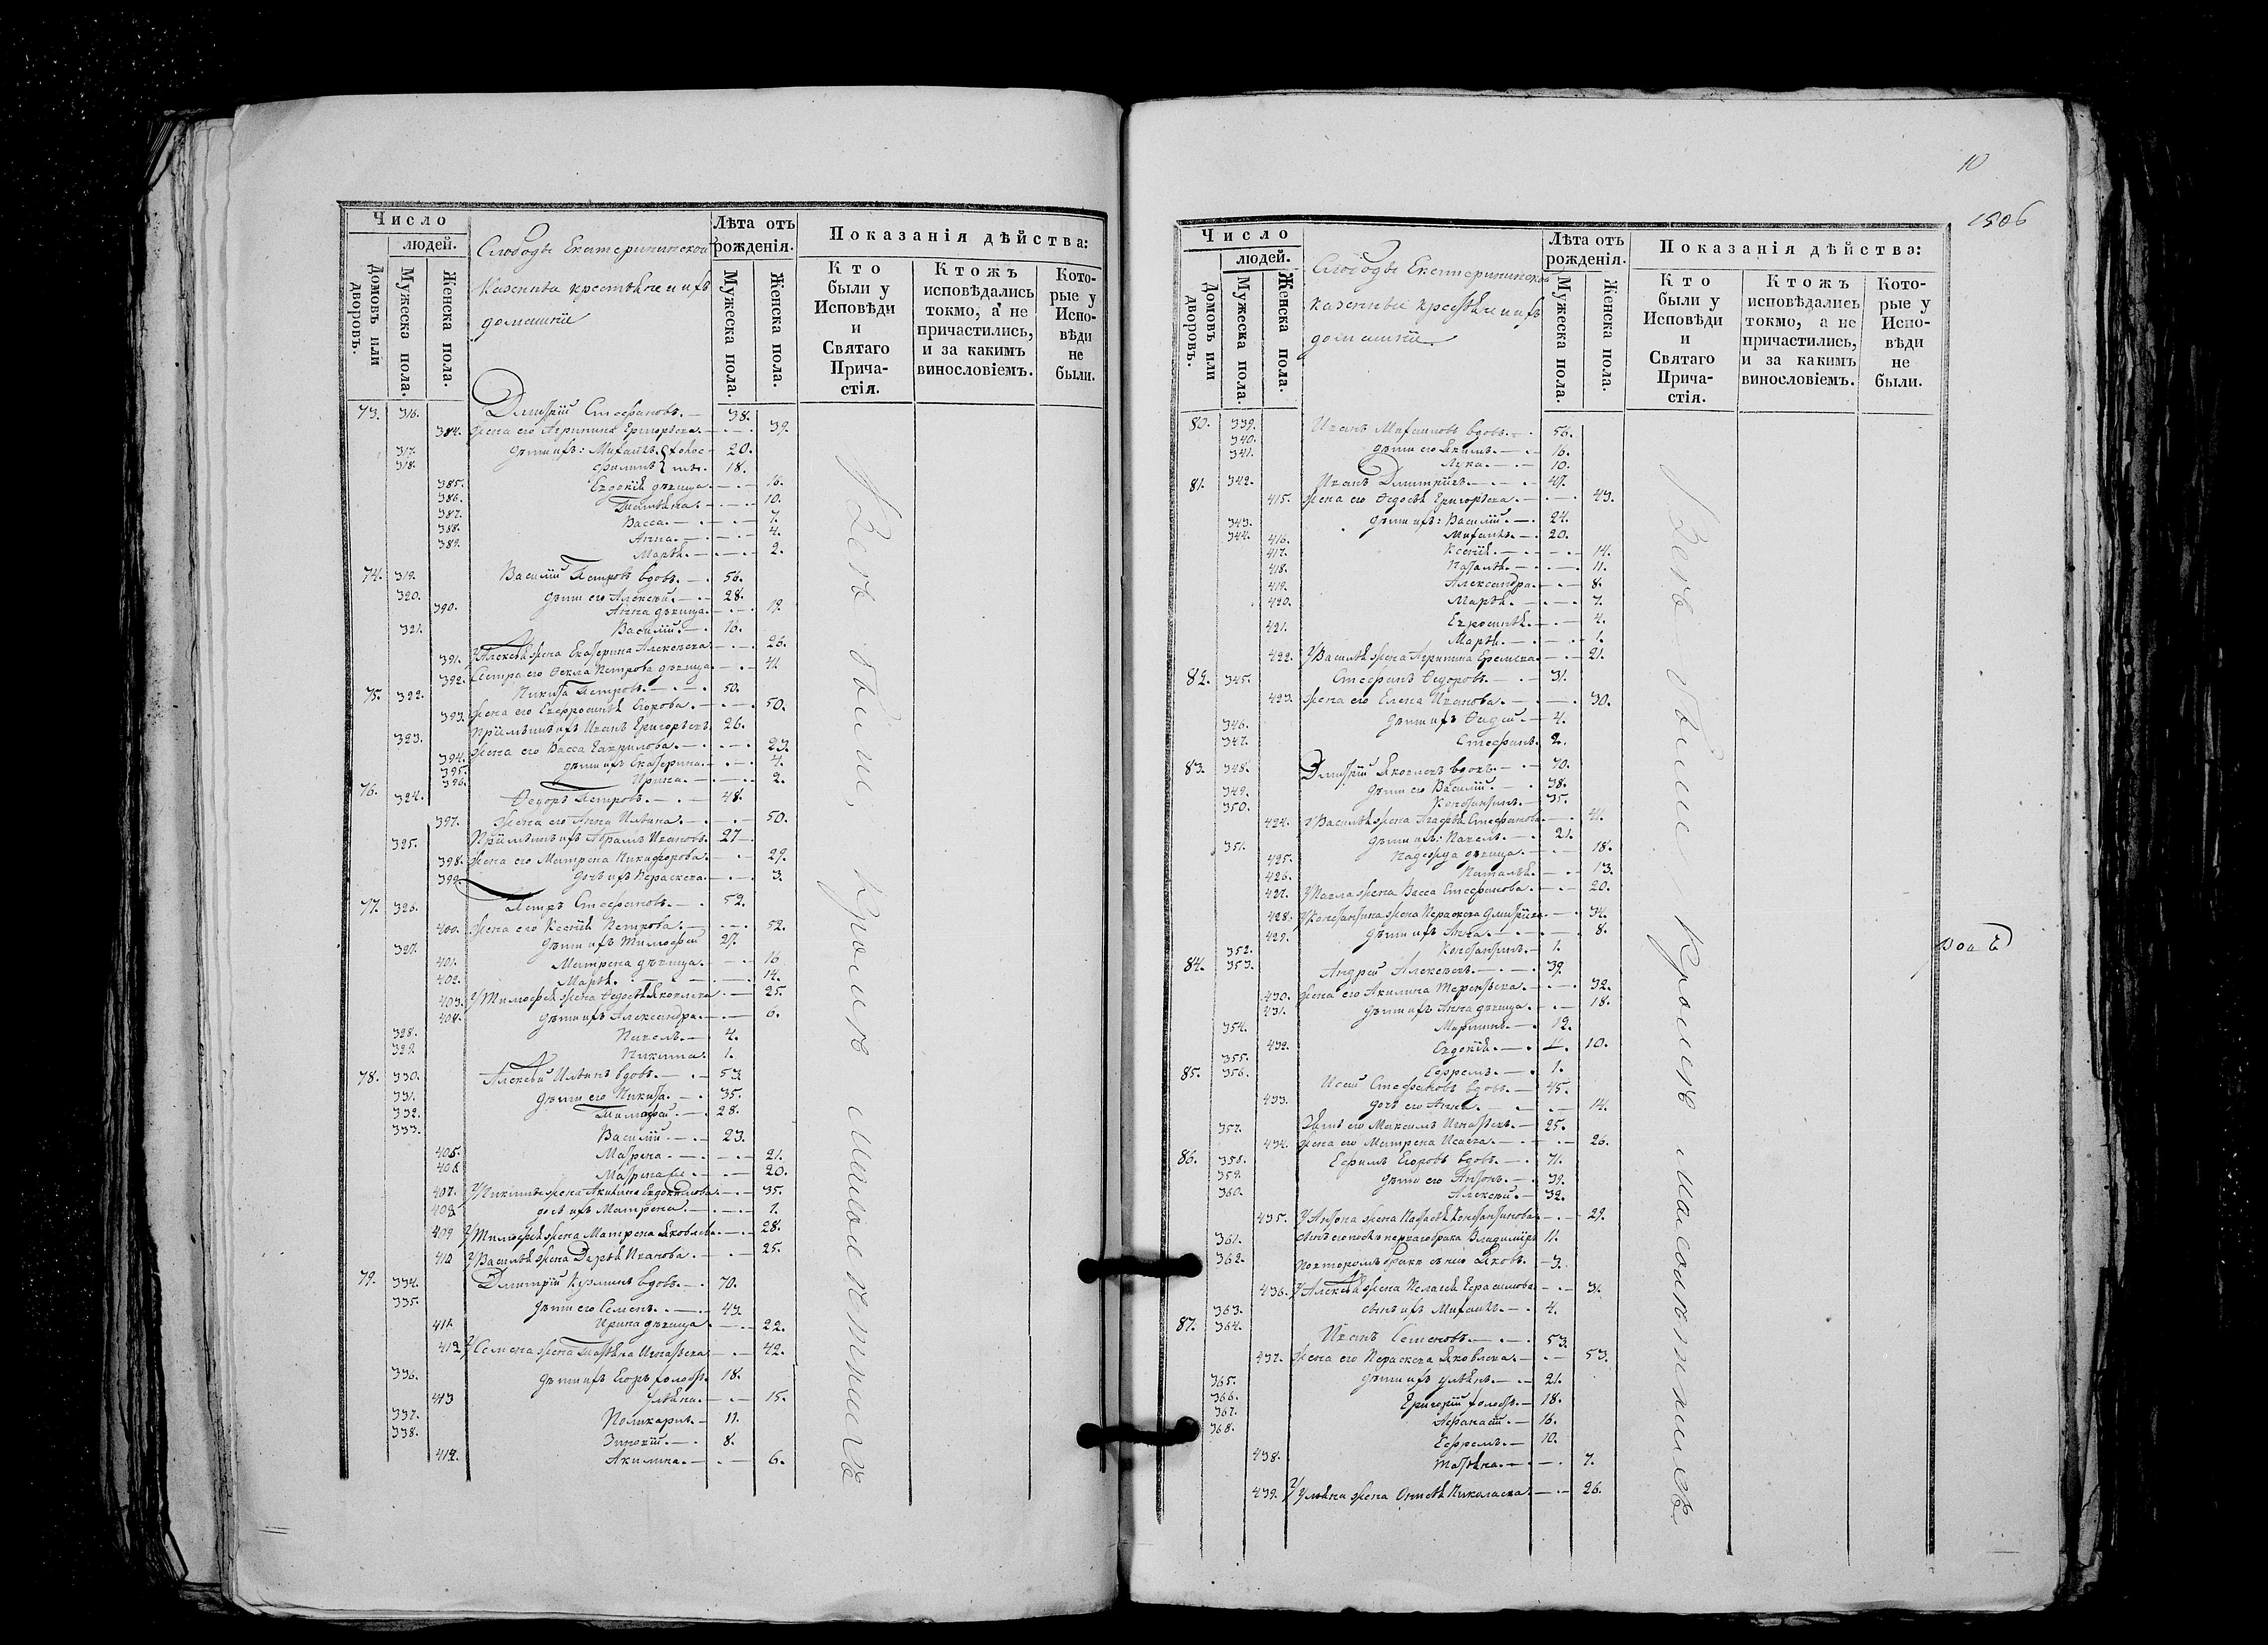 Число
людей.
Домовъ или дворовъ.
Мужеска пола.
Женска пола.
Слободы Екатерининской
казенныя крестьяне и ихъ
домашніи
Лѣта отъ рожденія.
Мужеска пола.
Женска пола.
Показанія дѣйства:
Кто были у Исповѣди и Святаго Причастія.
Ктожъ исповѣдались токмо, а не причастились, и за какимъ винословіемъ.
Которые у Исповѣди не были.
73. 316. Дмитрій Стефановъ. 38.
384. Жена его Агрипина Григорьева. 39.
317. дѣти ихъ: Михаилъ } холос- 20.
318. Филипъ } ты. 18.
385. Евдокія дѣвица. 16.
386. Татьяна. 10.
387. Васса. 7.
388. Анна. 4.
389. Марья. 2.
74. 319. Василій Петровъ вдовъ. 56.
320. дѣти его Алексѣй. 28.
390. Анна дѣвица. 19.
321. Василій. 16.
391. У Алексѣя жена Екатерина Алексѣева 26.
392. Сестра его Фекла Петрова дѣвица 41.
75. 322. Никита Петровъ. 50.
393. Жена его Евфросинья Егорова. 50.
323. Пріимышъ ихъ Иванъ Григорьевъ 26.
394. Жена его Васса Гаврилова. 23.
395. дѣти ихъ Екатерина. 4.
396. Ирина. 2.
76. 324. Федоръ Петровъ. 48.
397. Жена его Анна Ильина. 50.
325. Пріимышъ ихъ Абрамъ Ивановъ. 27
398. Жена его Матрена Никифорова. 29.
399. дочь ихъ Параскева. 3.
77. 326. Петръ Стефановъ. 52.
400. Жена его Ксенія Петрова. 52.
327. дѣти ихъ Тимофей 27.
401. Матрена дѣвица. 16
402. Марья. 14.
403. У Тимофея жена Федосья Яковлева 25.
404. дѣти ихъ Александра. 6.
328. Павелъ. 4.
329 Никита. 1.
78. 330. Алексѣй Ильинъ вдовъ. 53
331. дѣти его Никита. 35.
332. Тимофей. 28.
333. Василій. 23.
405. Матрена 21.
406 Матрена 20.
407. У Никиты жена Акилина Евдокимова 35.
408 дочь ихъ Матрена. 1.
409 У Тимофея жена Матрена Яковлева 28.
410 У Василья жена Дарья Иванова. 25.
79. 334. Дмитрій Кузминъ вдовъ. 70.
335. дѣти его Семенъ. 43.
411 Ирина дѣвица. 22.
412 У Семена жена Татьяна Игнатьева 42.
336. дѣти ихъ Егоръ холостъ. 18.
413 Ульяна. 15.
337. Поликарпъ. 11.
338. Зиновій. 8.
412. Акилина. 6.
Всѣ были, кромѣ малолѣтнихъ
10
1506
Число
людей.
Домовъ или дворовъ.
Мужеска пола.
Женска пола.
Слободы Екатерининской
казенныи крестьяне и ихъ
домашніи
Лѣта отъ рожденія.
Мужеска пола.
Женска пола.
Показанія дѣйства:
Кто были у Исповѣди и Святаго Причастія.
Ктожъ исповѣдались токмо, а не причастились, и за какимъ винословіемъ.
Которые у Исповѣди не были.
80. 339. Иванъ Михаиловъ вдовъ. 56.
340. дѣти его Якимъ. 16.
341. Лука. 10.
81. 342. Иванъ Дмитріевъ. 47.
415. Жена его Федосья Григорьева. 43.
343. дѣти ихъ: Василій. 24.
344. Михаилъ. 20.
416. Ксенія. 14.
417. Наталья. 11.
418. Александра. 8.
419. Марья. 7.
420. Евросинья. 4.
421. Марья. 1.
422. У Василья жена Агрипина Еремѣева 21.
82. 345. Стефанъ Федоровъ. 31.
423. Жена его Елена Иванова. 30.
346. дѣти ихъ Фадей. 4.
347. Стефанъ. 2.
83. 348. Дмитрій Яковлевъ вдовъ. 70.
349. дѣти его Василій. 38.
350. Константинъ. 35.
424. У Василья жена Агафья Стефанова 41.
351. дѣти ихъ: Павелъ. 21.
425. Надежда дѣвица. 18.
426. Наталья. 13.
427. У Павла жена Васса Стефанова. 20.
428. У Константина жена Параскева Дмитріева. 34.
429. дѣти ихъ Анна. 8.
352. Константинъ. 1.
84. 353. Андрей Алексѣевъ. 39
430. Жена его Акилина Терентьева. 32.
431. дѣти ихъ Анна дѣвица. 18.
354. Мартинъ. 12.
432. Евдокія. 10.
355. Ефремъ. 1.
85. 356. Исай Стефановъ вдовъ. 45.
433. дочь его Анна. 14.
357. Зять его Максимъ Игнатьевъ. 25.
434. Жена его Матрена Исаева. 26.
86. 358. Ефимъ Егоровъ вдовъ. 71.
359. дѣти его Антонъ. 39.
360. Алексѣй. 32.
435. У Антона жена Наталья Константинова. 29.
361. сынъ его отъ перваго брака Владиміръ 11.
362. Яковъ. 3.
436. У Алексѣя жена Пелагея Герасимова 31.
363. сынъ ихъ Михаилъ. 4.
87. 364. Иванъ Семеновъ. 53.
437. Жена его Параскева Яковлева. 53.
365. дѣти ихъ Ульянъ. 21.
366. Григорій холостъ. 18.
367. Афанасій. 16.
368. Ефремъ. 10.
438. Татьяна. 7.
439. У Ульяна жена Анисья Николаева. 26.
Всѣ были кромѣ малолѣтнихъ